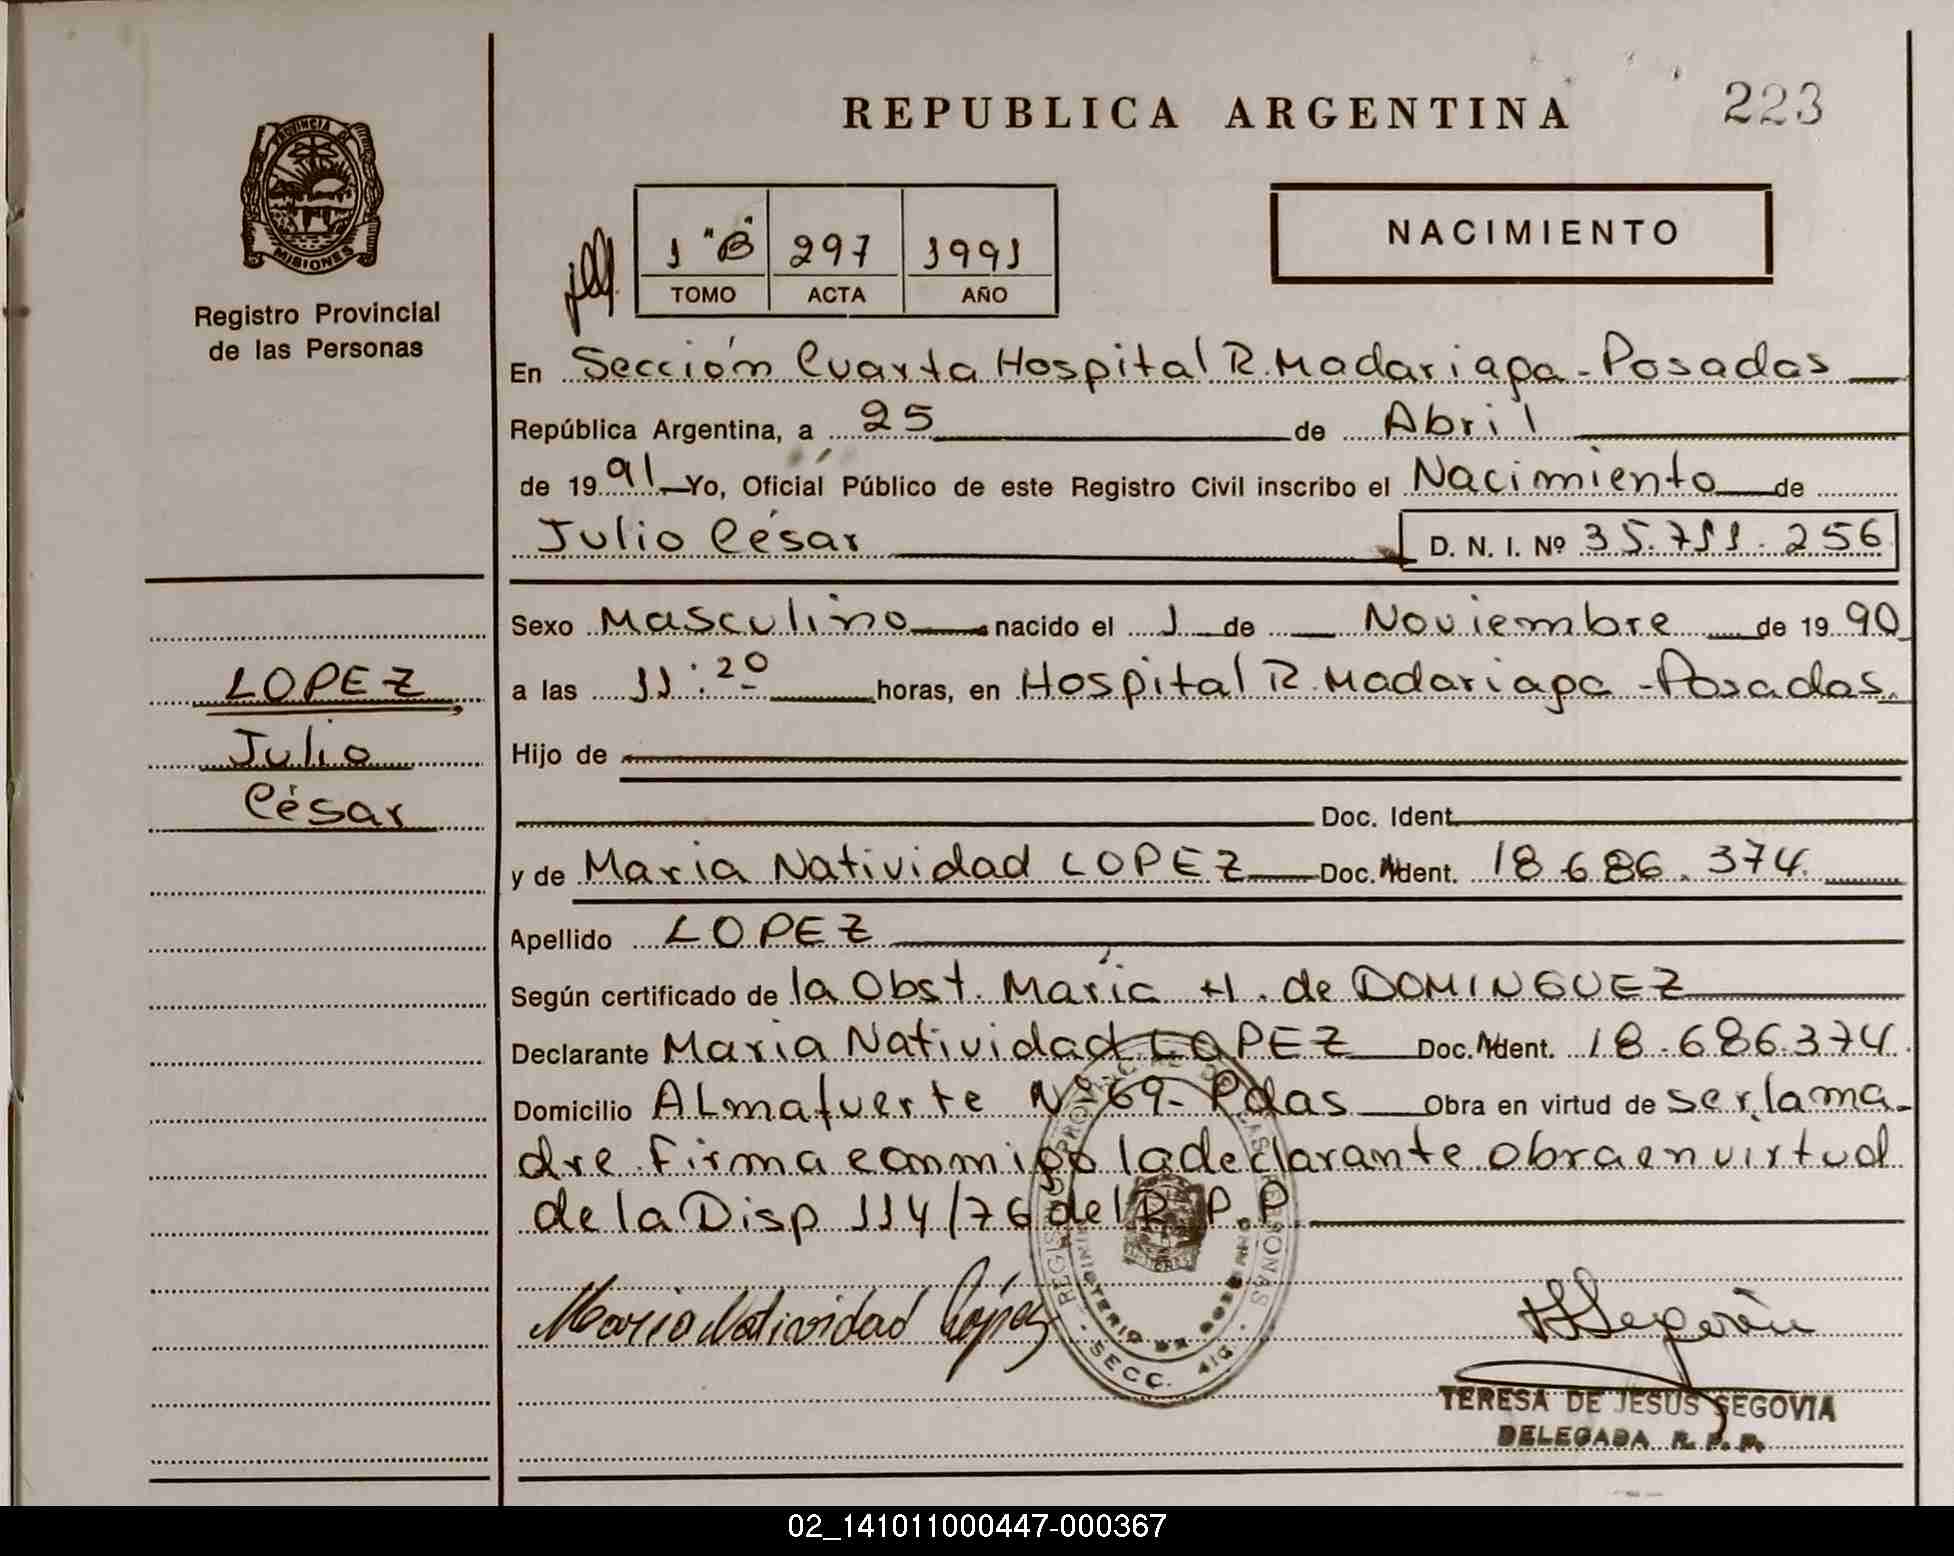 REPUBLICA ARGENTINA
223
PROVINCIA DE
MISIONES
Registro Provincial
de las Personas
1 "B" 297 1991
TOMO ACTA AÑO
NACIMIENTO
En Sección Cuarta Hospital R. Madariaga - Posadas
República Argentina, a 25 de Abril
de 1991 Yo, Oficial Público de este Registro Civil inscribo el Nacimiento de
Julio César D. N. I. Nº 35.711.256
Sexo Masculino nacido el 1 de Noviembre de 1990
a las 11:20 horas, en Hospital R. Madariaga - Posadas.
Hijo de
Doc. Ident.
y de Maria Natividad LOPEZ Doc. Ident. 18.686.374.
Apellido LOPEZ
Según certificado de la Obst. María H. de DOMINGUEZ
Declarante Maria Natividad LOPEZ Doc. Ident. 18.686.374.
Domicilio ALmafuerte Nº 69- Pdas Obra en virtud de ser la ma-
dre. Firma conmigo la declarante obra en virtud
de la Disp 114/76 del R.P.P.
LOPEZ,
Julio
César
Maria Natividad López
TERESA DE JESUS SEGOVIA
DELEGADA R. P. P.
SECC. 4ta.
02_141011000447-000367